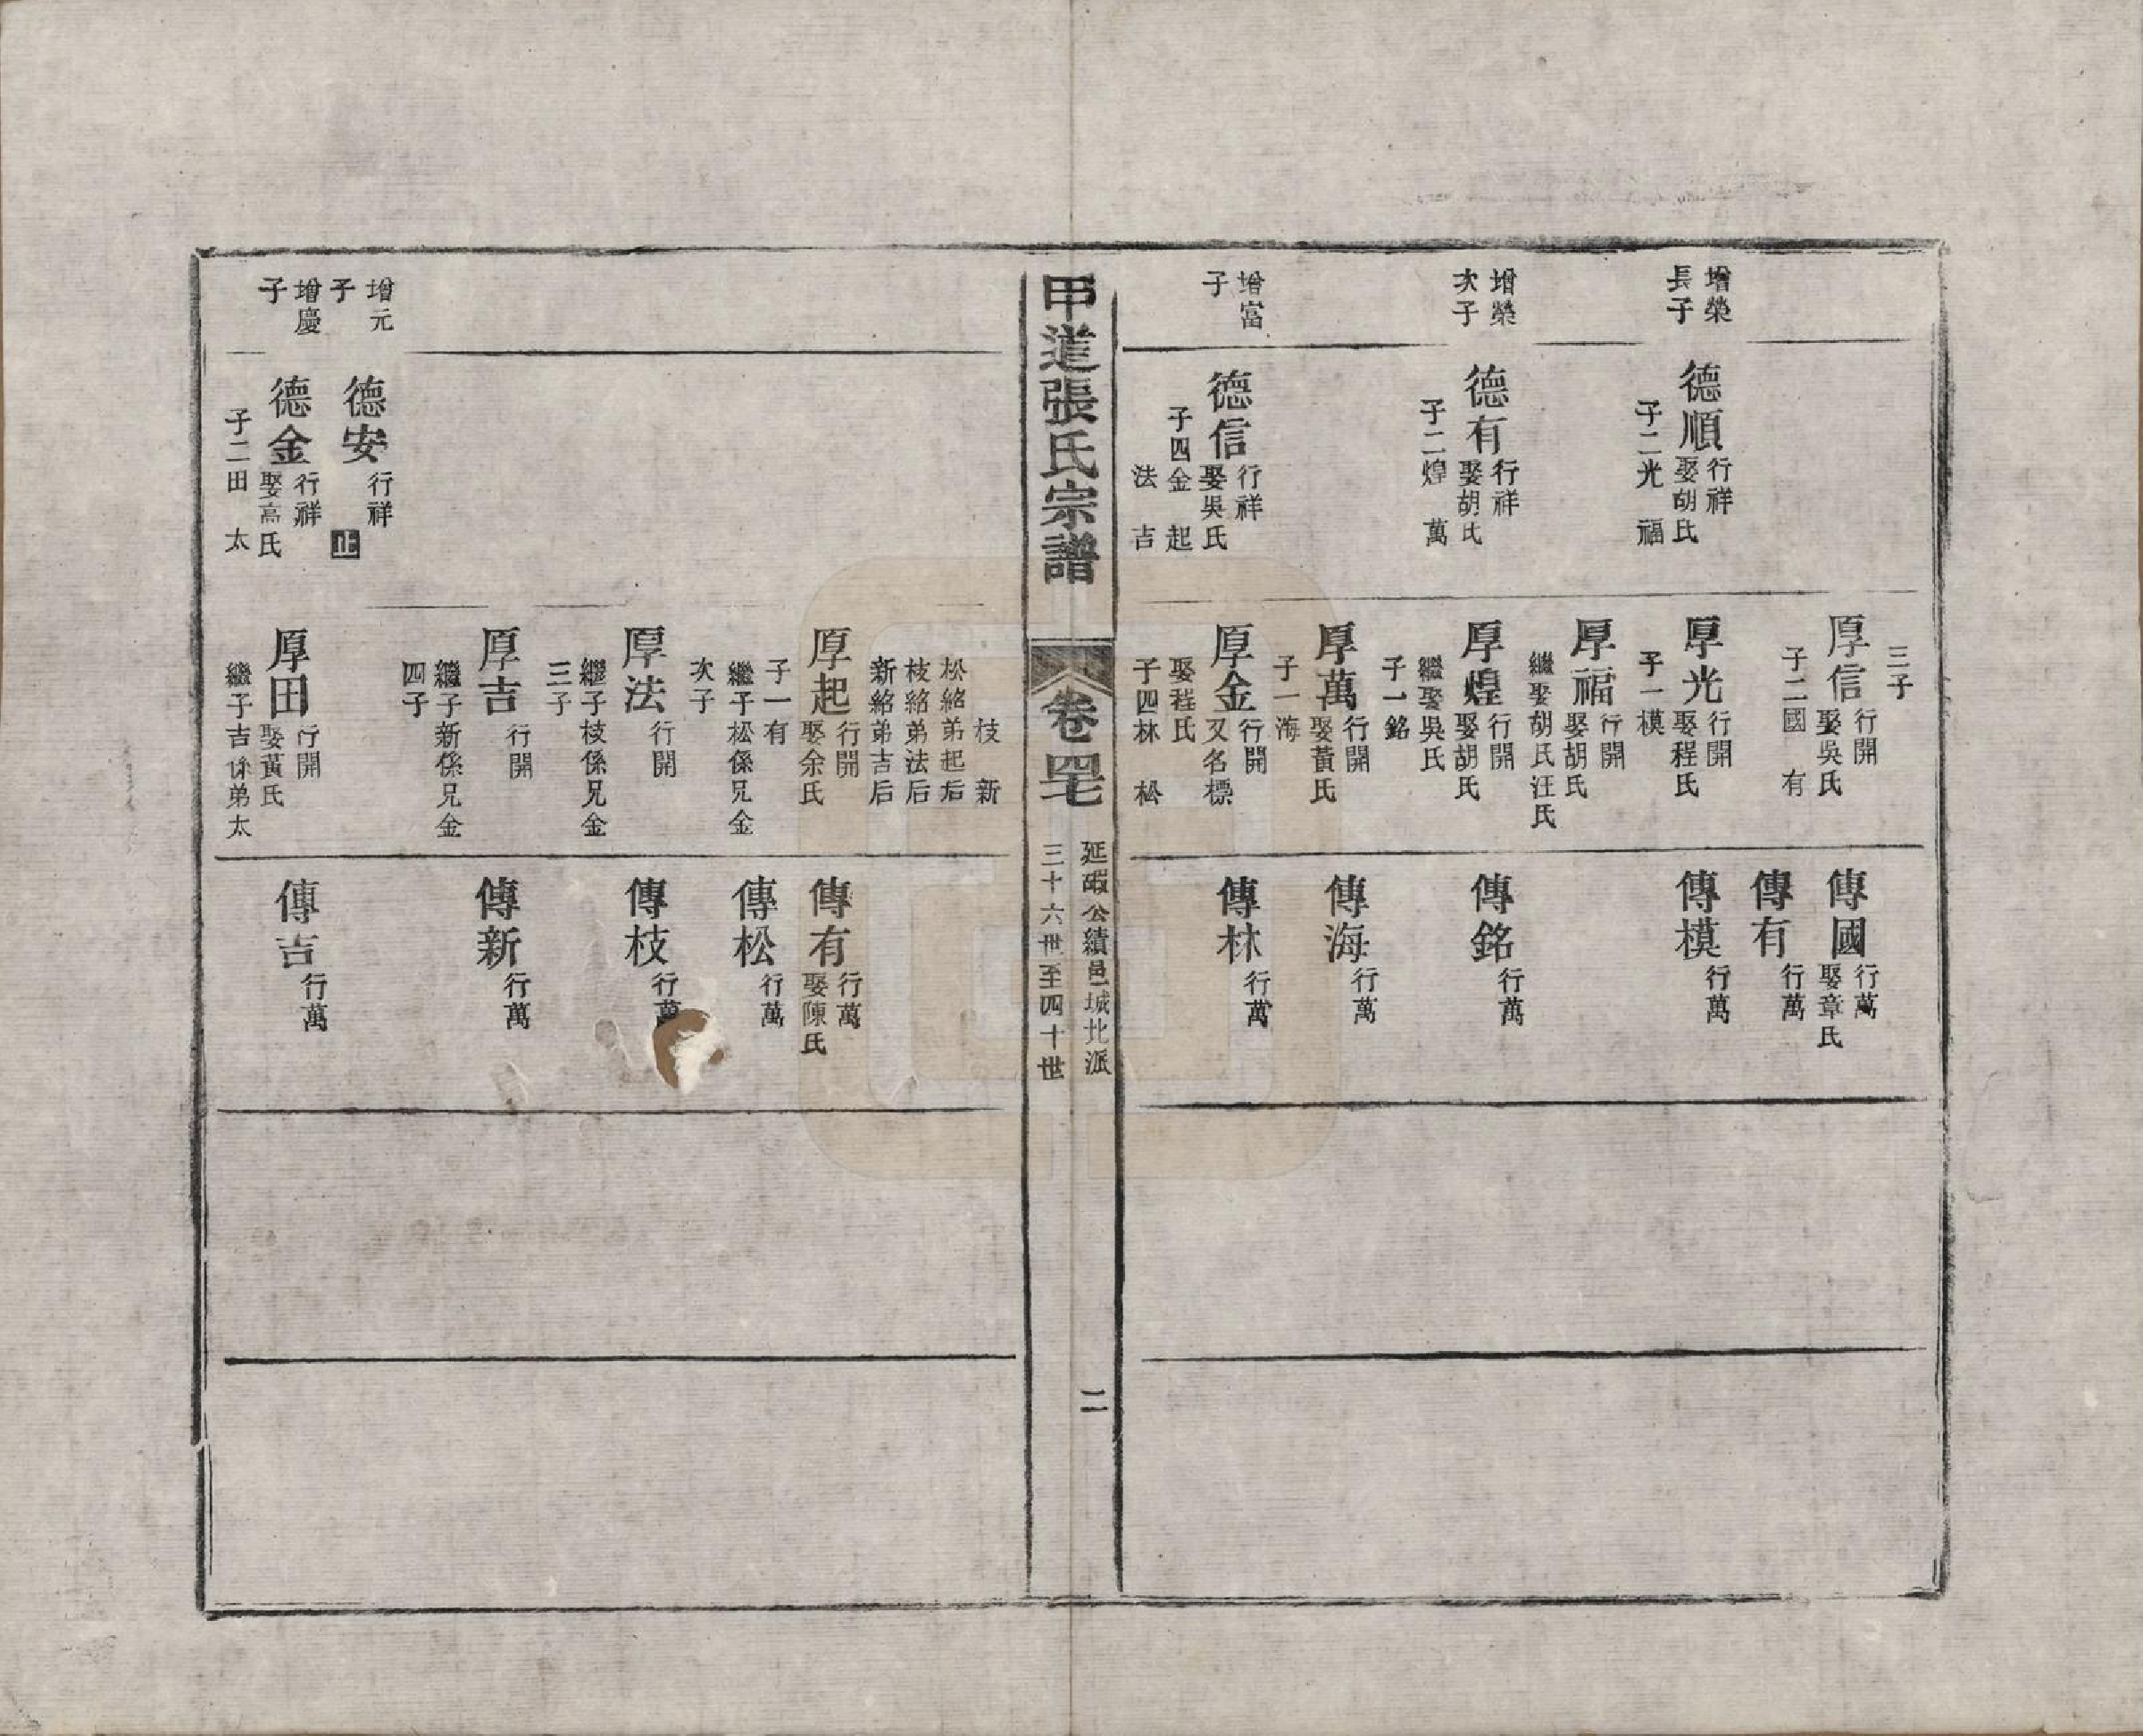 增榮
長子
增榮
次子
增富
子
德順
行祥
娶胡氏
子二光 福
德有
行祥
娶胡氏
子二煌 萬
德信
行祥
娶吳氏
子四金 起
法 吉
三子
厚信
行開
娶吳氏
子二國 有
厚光
行開
娶程氏
子一模
厚福
行開
娶胡氏
繼娶胡氏汪氏
厚煌
行開
娶胡氏
繼娶吳氏
子一銘
厚萬
行開
娶黃氏
子一海
厚金
行開
又名標
娶程氏
子四林 松
傳國
行萬
娶章氏
傳有
行萬
傳模
行萬
傳銘
行萬
傳海
行萬
傳林
行萬
甲道張氏宗譜
卷四七
延瑕公績邑城北派
三十六世至四十世
二
增元
子
增慶
子
德安
行祥
止
德金
行祥
娶高氏
子二田 太
枝 新
松紹弟起后
枝紹弟法后
新紹弟吉后
厚起
行開
娶余氏
子一有
繼子松係兄金
次子
厚法
行開
繼子枝係兄金
三子
厚吉
行開
繼子新係兄金
四子
厚田
行開
娶黃氏
繼子吉係弟太
傳有
行萬
娶陳氏
傳松
行萬
傳枝
行萬
傳新
行萬
傳吉
行萬